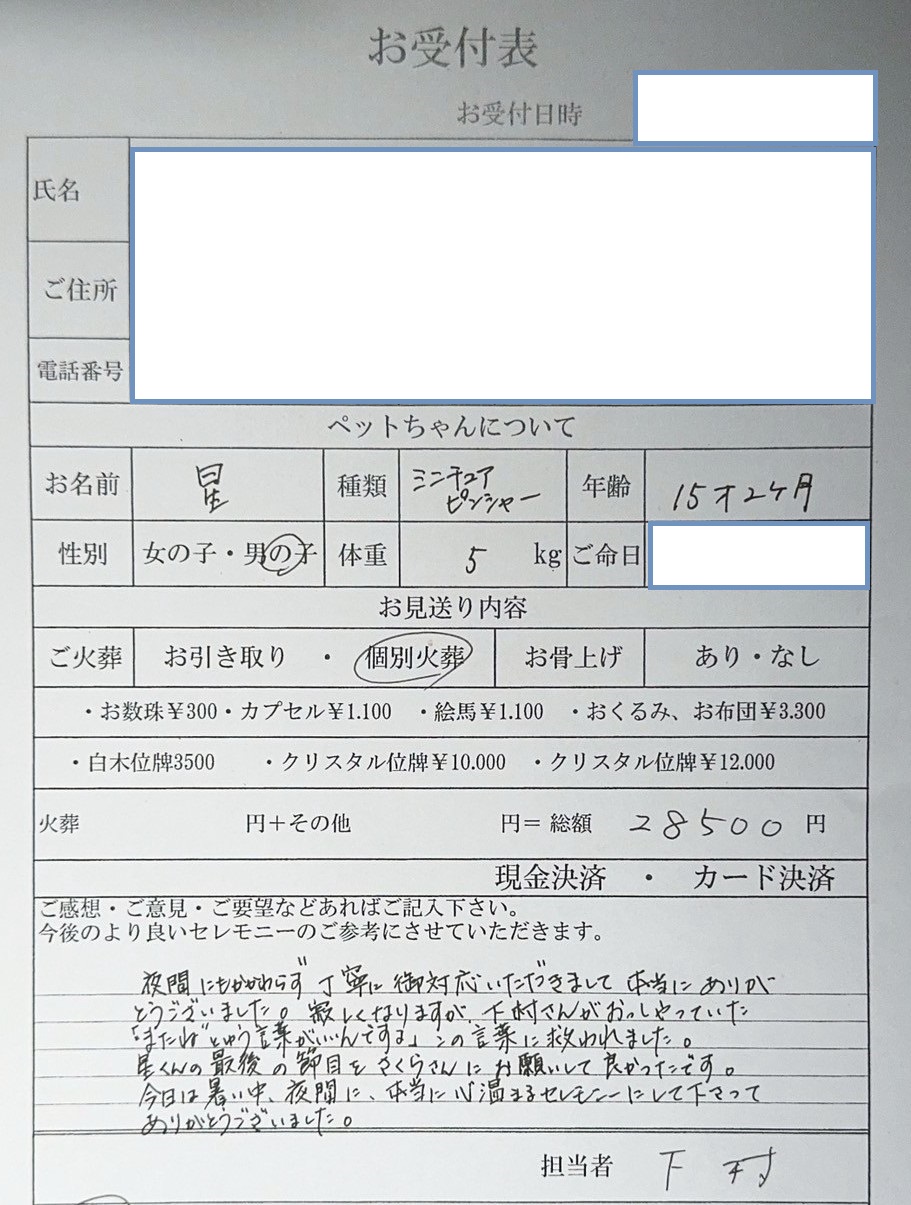 お受付表
お受付日時
氏名
ご住所
電話番号
ペットちゃんについて
お名前 星 種類 ミニチュアピンシャー 年齢 15才2ヶ月
性別 女の子・男の子 体重 5 kg ご命日
お見送り内容
ご火葬 お引き取り ・ 個別火葬 お骨上げ あり・なし
・お数珠¥300・カプセル¥1.100 ・絵馬¥1.100 ・おくるみ、お布団¥3.300
・白木位牌3500 ・クリスタル位牌¥10.000 ・クリスタル位牌¥12.000
火葬 円+その他 円= 総額 28500 円
現金決済 ・ カード決済
ご感想・ご意見・ご要望などあればご記入下さい。
今後のより良いセレモニーのご参考にさせていただきます。
夜間にもかかわらず丁寧に御対応いただきまして本当にありが
とうございました。寂しくなりますが、下村さんがおっしゃっていた
「"またね"とゆう言葉がいいんですよ」この言葉に救われました。
星くんの最後の節目をさくらさんにお願いして良かったです。
今日は暑い中、夜間に、本当に心温まるセレモニーにして下さって
ありがとうございました。
担当者 下村